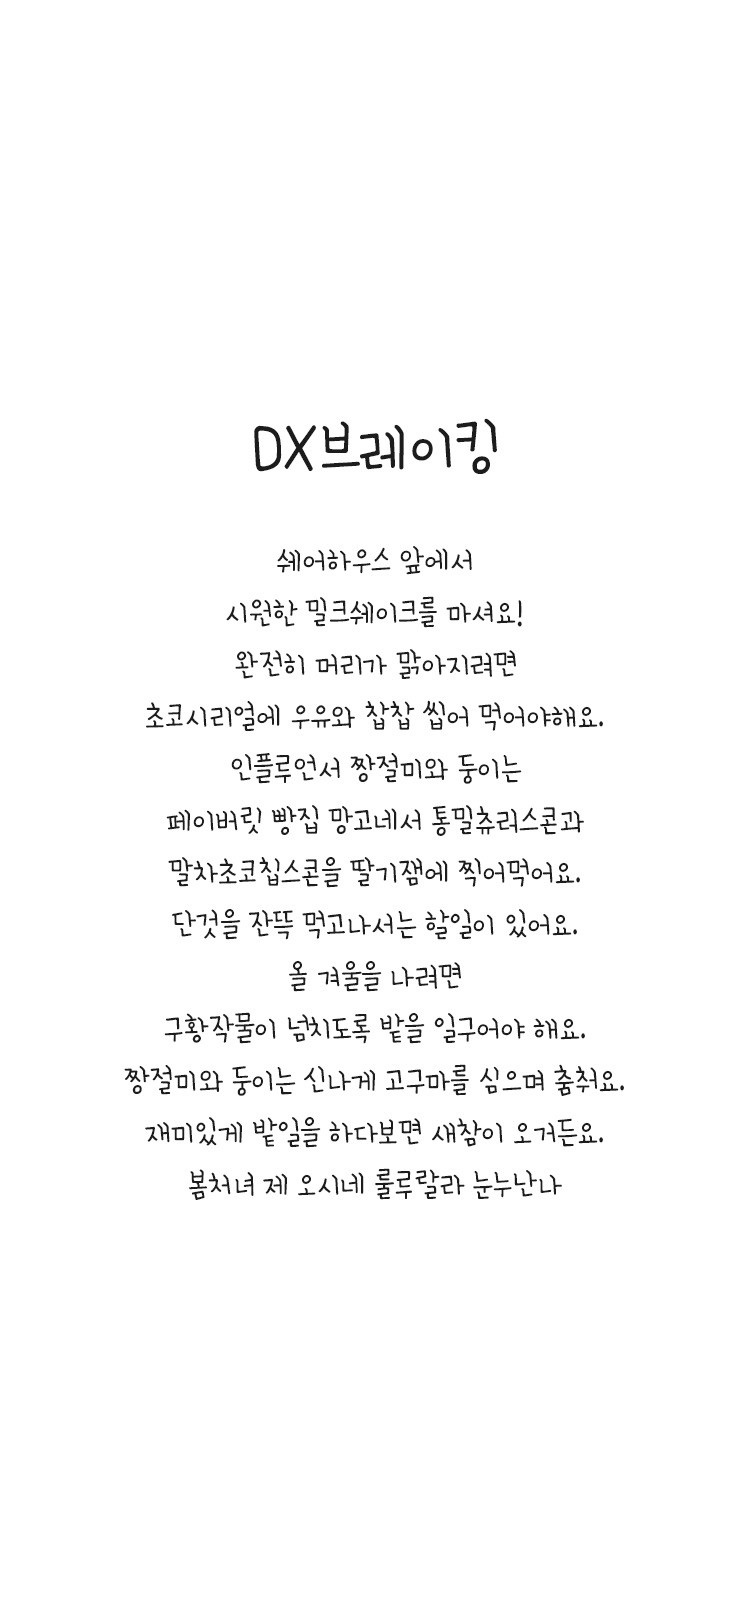 DX브레이킹
쉐어하우스 앞에서
시원한 밀크쉐이크를 마셔요!
완전히 머리가 맑아지려면
초코시리얼에 우유와 찹찹 씹어 먹어야해요.
인플루언서 짱절미와 둥이는
페이버릿 빵집 망고네서 통밀츄러스콘과
말차초코칩스콘을 딸기잼에 찍어먹어요.
단것을 잔뜩 먹고나서는 할일이 있어요.
올 겨울을 나려면
구황작물이 넘치도록 밭을 일구어야 해요.
짱절미와 둥이는 신나게 고구마를 심으며 춤춰요.
재미있게 밭일을 하다보면 새참이 오거든요.
봄처녀 제 오시네 룰루랄라 눈누난나